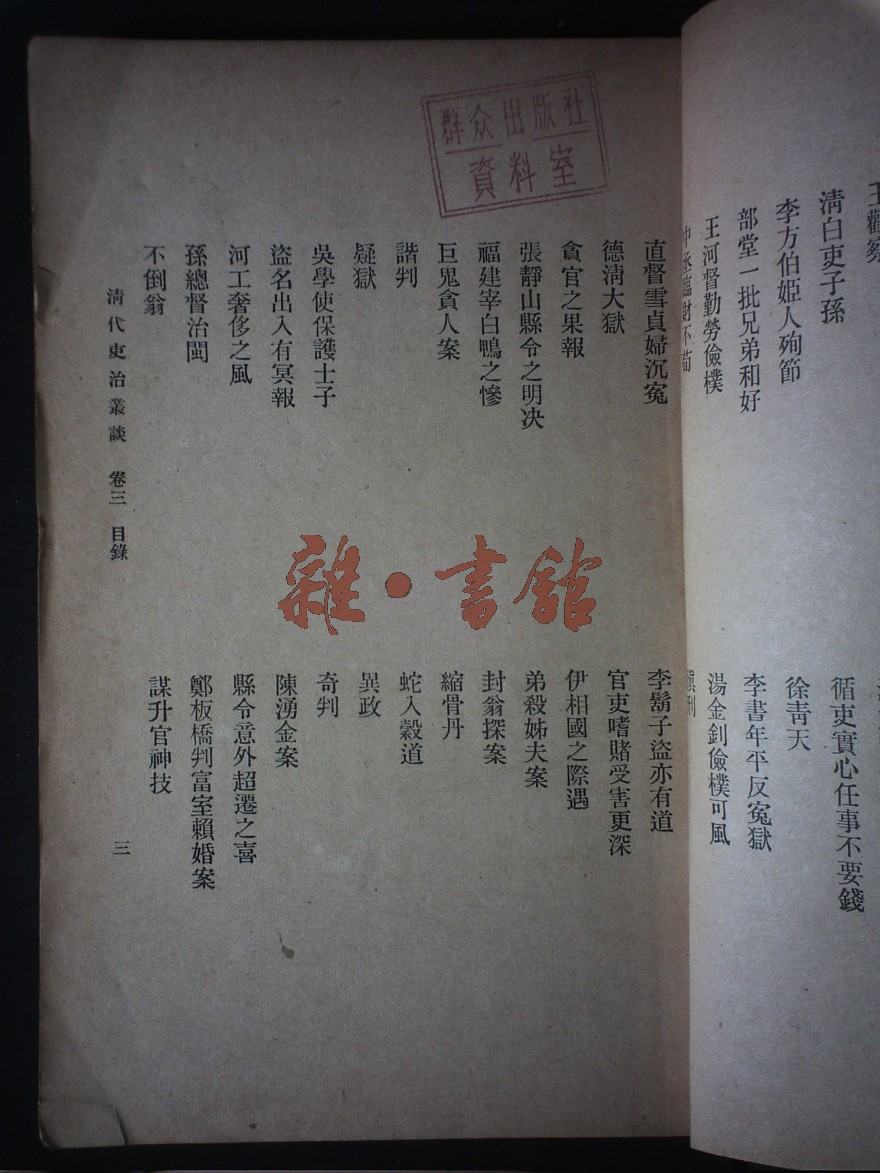 群众出版社
資料室
清白吏子孫
李方伯姬人殉節
部堂一批兄弟和好
王河督勤勞儉樸
中丞臨財不苟
循吏實心任事不要錢
徐靑天
李書年平反冤獄
湯金釗儉樸可風
直督雪貞婦沉冤
德淸大獄
貪官之果報
張靜山縣令之明决
福建宰白鴨之慘
巨鬼貪人案
諧判
疑獄
吳學使保護士子
盜名出入有冥報
河工奢侈之風
孫總督治閩
不倒翁
李鬍子盜亦有道
官吏嗜賭受害更深
伊相國之際遇
弟殺姊夫案
封翁探案
縮骨丹
蛇入穀道
異政
奇判
陳湧金案
縣令意外超遷之喜
鄭板橋判富室賴婚案
謀升官神技
淸代吏治叢談 卷三 目錄
三
雜·書館